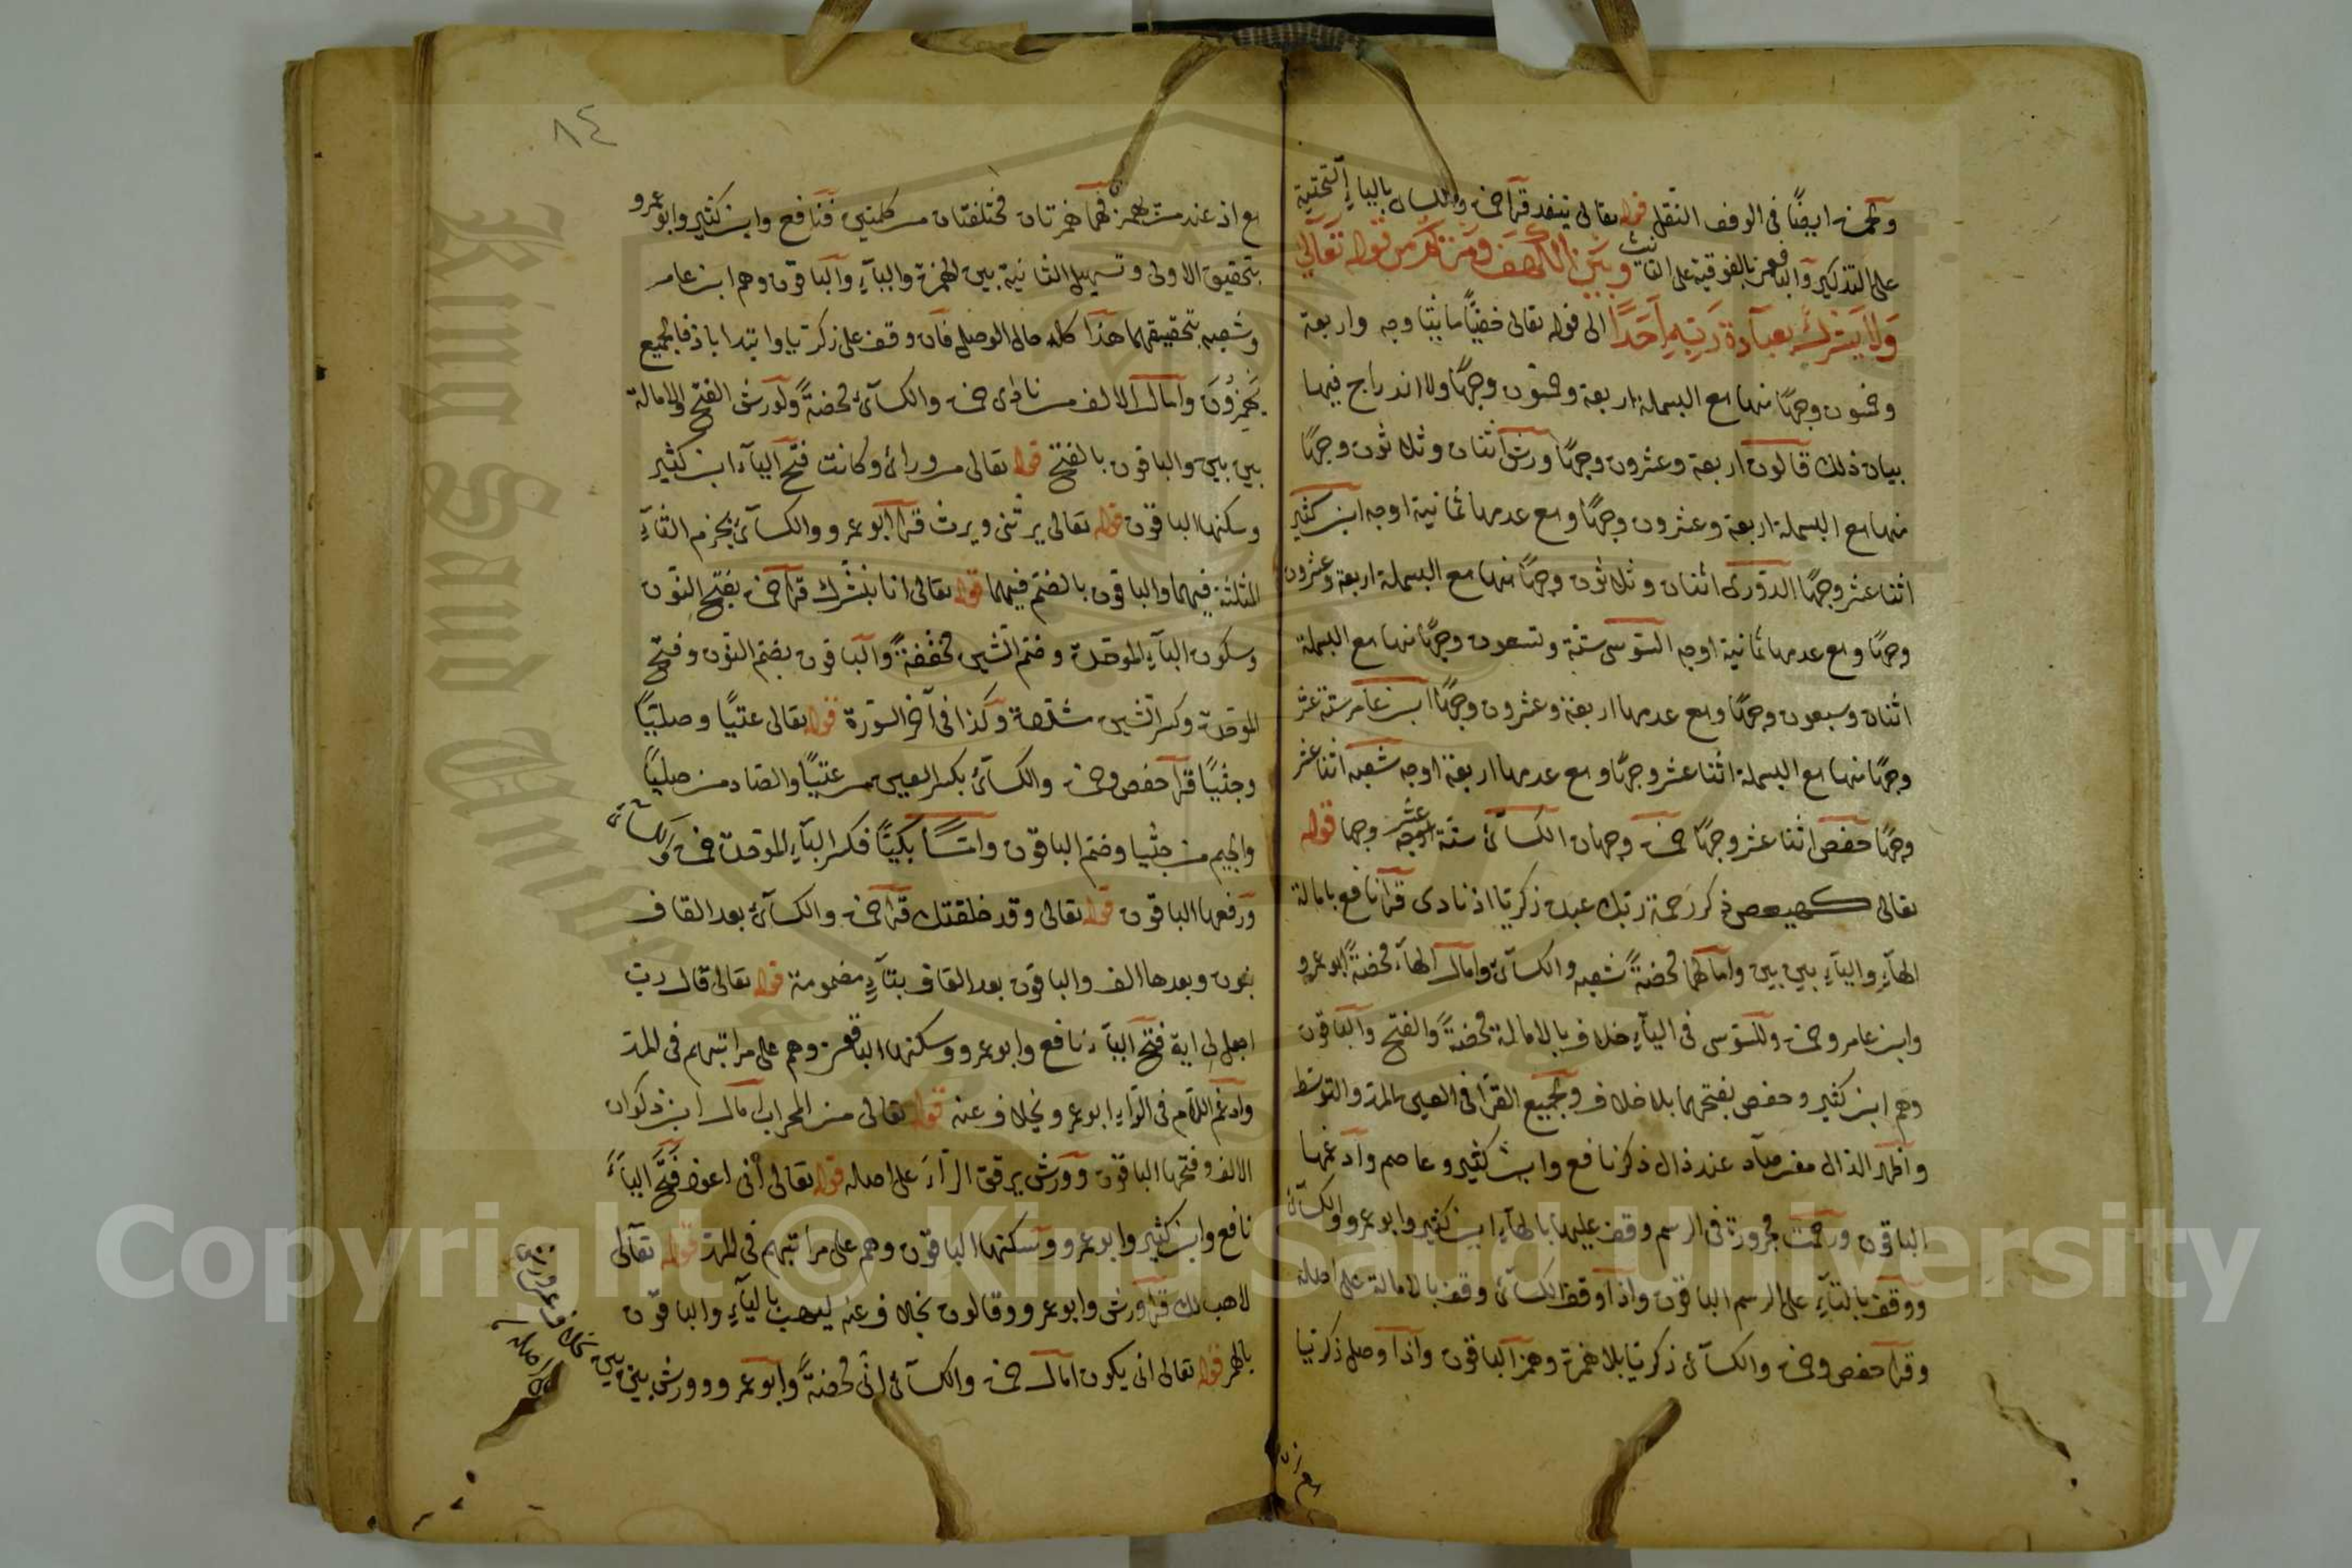 ولحمزة ايضًا في الوقف النقل قوله تعالى تنفد قرا حمزة والكساي بالياء التحتية
على التذكير والباقون بالفوقية على التانيث وبين الكهف ومريم من قوله تعالى
وَلَا يُشْرِكْ بِعِبَادَةِ رَبِّهِ أَحَدًا الى قوله تعالى خفيًّا مايتا وجه واربعة
وخمسون وجهًا منها مع البسملة اربعة وخمسون وجهًا ولا اندراج فيها
بيان ذلك قالون اربعة وعشرون وجهًا ورش اثنان وثلاثون وجهًا
منها مع البسملة اربعة وعشرون وجهًا ومع عدمها ثمانية اوجه ابن كثير
اثنا عشر وجهًا الدوري اثنان وثلاثون وجهًا منها مع البسملة اربعة وعشرون
وجهًا ومع عدمها ثمانية اوجه السوسي ستة وتسعون وجهًا منها مع البسملة
اثنان وسبعون وجهًا ومع عدمها اربعة وعشرون وجهًا ابن عامر ستة عشر
وجهًا منها مع البسملة اثنا عشر وجهًا ومع عدمها اربعة اوجه شعبه اثنا عشر
وجهًا حفص اثنا عشر وجهًا حمزة وجهان الكسآئ ستة عشر وجها قوله
تعالى كهيعص ذكر رحمة ربك عبده زكريا اذ نادى قرا نافع بامالة
الهآءِ واليآءِ بين بين وامالهما محضةً شعبه والكسآئ وامال الهآء محضةً ابو عمرو
وابن عامر وحمزة وللسوسي في اليآءِ خلاف بالامالة محضةً والفتح والباقون
وهم ابن كثير وحفص بفتحهما بلا خلاف ولجميع القرا في العين المد والتوسط
واظهر الدال من صاد عند ذال ذكر نافع وابن كثير وعاصم وادغمها
الباقون ورحمت مجرورة في الرسم وقف عليها بالهآءِ ابن كثير وابو عمرو والكسآئ
ووقف بالتآءِ على الرسم الباقون واذا وقف الكسآئ وقف بالامالة على اصله
وقرا حفص وحمزة والكسآئ زكريا بلا همزة وهمز الباقون واذا وصل زكريا
مع اذ عند من همز فهما همزتان مختلفتان من كلمتين فنافع وابن كثير وابو عمرو
بتحقيق الاولى وتسهيل الثانية بين الهمزة واليآءِ والباقون وهم ابن عامر
وشعبه بتحقيقهما هذا كله حال الوصل فان وقف على زكريا وابتدا باذ فالجميع
يَهْمِزُونَ وامال الالف من نادى حمزة والكسآئ محضةً ولورش الفتح والامالة
بين بين والباقون بالفتح قوله تعالى من ورائ وكانت فتح اليآء ابن كثير
وسكنها الباقون قوله تعالى يرثني ويرث قرا ابو عمرو والكسآئ بجزم الثآءِ
المثلثة فيهما والباقون بالضم فيهما قوله تعالى انا نبشرك قرا حمزة بفتح النون
وسكون البآءِ الموحدة وضم الشين مخففةً والباقون بضم النون وفتح
الموحدة وكسر الشين مشددة وكذا في آخر السورة قوله تعالى عتيًّا وصليًّا
وجثيًّا قرا حفص وحمزة والكسآئ بكسر العين من عتيًّا والصاد من صليًّا
والجيم من جثيا وضم الباقون وامّا بكيًّا فكسر البآءِ الموحدة حمزة والكسآئ
ورفعها الباقون قوله تعالى وقد خلقتك قرا حمزة والكسآئ بعد القاف
بنون وبعدها الف والباقون بعد القاف بتآءٍ مضمومة قوله تعالى قال رب
اجعل لي اية فتح اليآء نافع وابو عمرو وسكنها الباقون وهم على مراتبهم في المد
وادغم اللام في الرآءِ ابو عمرو بخلاف عنه قوله تعالى من المحراب امال ابن ذكوان
الالف وفتحها الباقون وورش يرقق الرآءَ على اصله قوله تعالى أني اعوذ فتح اليآءَ
نافع وابن كثير وابو عمرو وسكنها الباقون وهم على مراتبهم في المد قوله تعالى
لاهب لك قرا ورش وابو عمرو وقالون بخلاف عنه ليهب باليآءِ والباقون
بالهمز قوله تعالى انى يكون امال حمزة والكسآئ انى محضةً وابو عمرو وورش بين بين